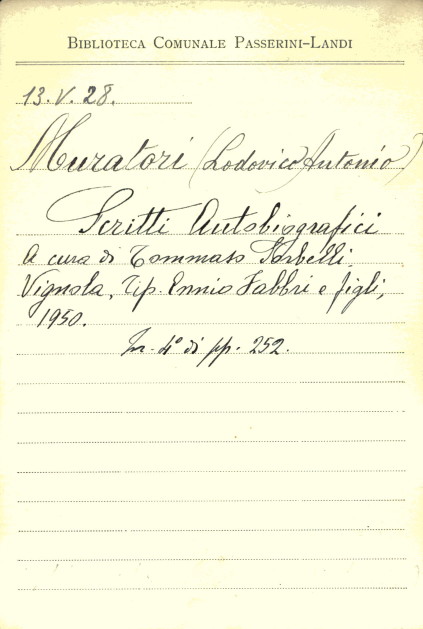 BIBLIOTECA COMUNALE PASSERINI-LANDI
13.V.28.
Muratori (Lodovico Antonio)
Scritti Autobiografici
A cura di Tommaso Sorbelli.
Vignola, Tip. Ennio Fabbri e figli,
1950.
In-4° di pp. 252.